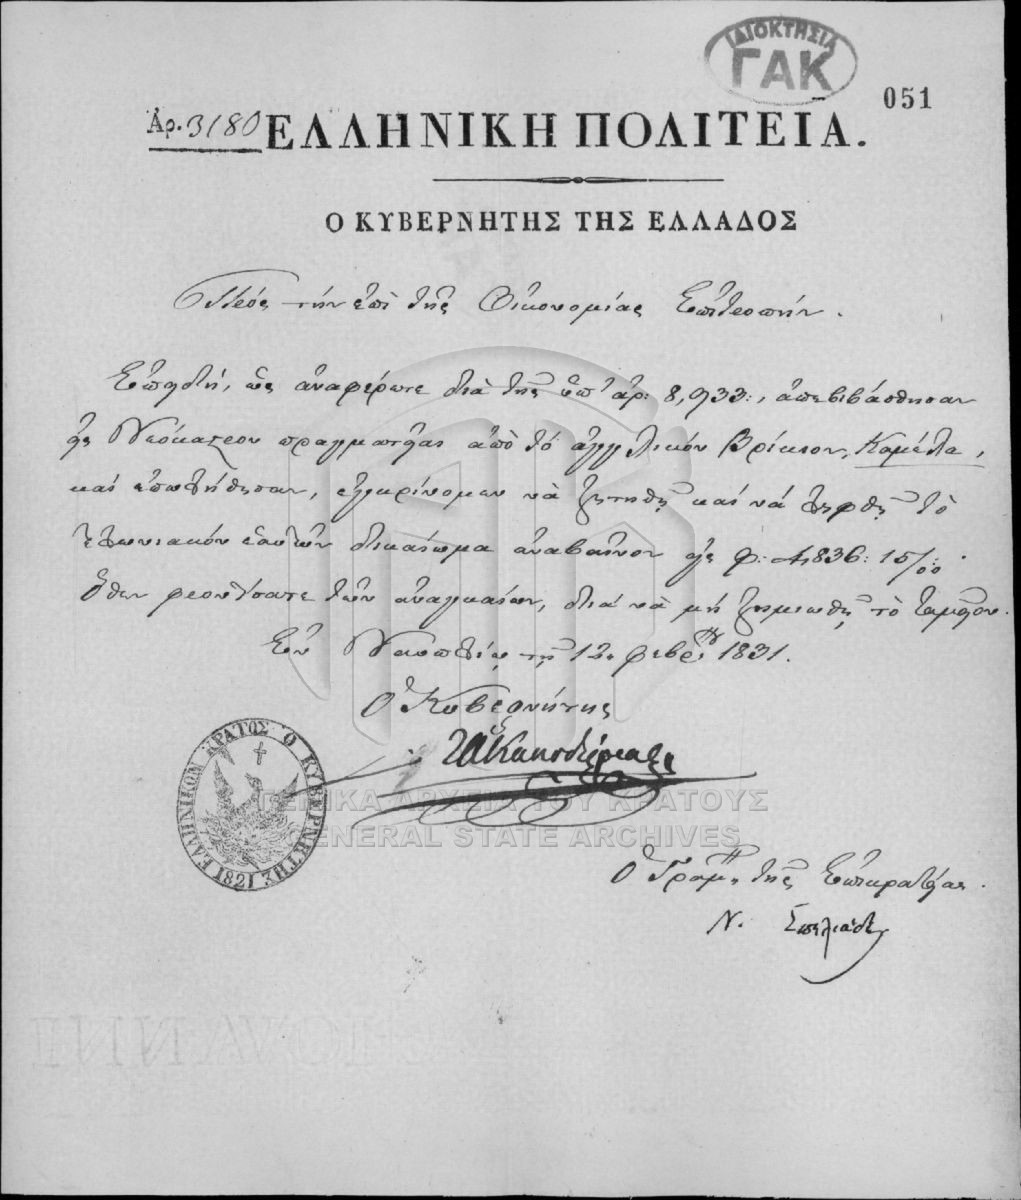 ΙΔΙΟΚΤΗΣΙΑ
ΓΑΚ
051
Ἀρ. 3180 ΕΛΛΗΝΙΚΗ ΠΟΛΙΤΕΙΑ.
Ο ΚΥΒΕΡΝΗΤΗΣ ΤΗΣ ΕΛΛΑΔΟΣ
Πρὸς τὴν ἐπὶ τῆς Οἰκονομίας Ἐπιτροπήν.
Ἐπειδή, ὡς ἀναφέρετε διὰ τῆς ὑπ' ἀρ: 8,933:, ἀπεβιβάσθησαν
εἰς Νεόκαστρον πραγματείας ἀπὸ τὸ ἀγγλικόν Βρίκιον, Καμέλα,
καὶ ἐπωλήθησαν, ἐγκρίνομεν νὰ ζητηθῇ καὶ νὰ ληφθῇ τὸ
τελωνιακόν αὐτῶν δικαίωμα ἀναβαῖνον εἰς φ: 4,836: 15/00:
Ὅθεν φροντίσατε τῶν ἀναγκαίων, διὰ νὰ μὴ ζημιωθῇ τὸ ταμεῖον.
Ἐν Ναυπλίῳ τῇ 12 φεβρ: 1831.
Ὁ Κυβερνήτης
ΙΑ Καποδίστριας
ΕΛΛΗΝΙΚΟΝ ΚΡΑΤΟΣ Ο ΚΥΒΕΡΝΗΤΗΣ 1821
ΓΕΝΙΚΑ ΑΡΧΕΙΑ ΤΟΥ ΚΡΑΤΟΥΣ
GENERAL STATE ARCHIVES
Ὁ Γραμ. τῆς Ἐπικρατείας.
Ν. Σπηλιάδης